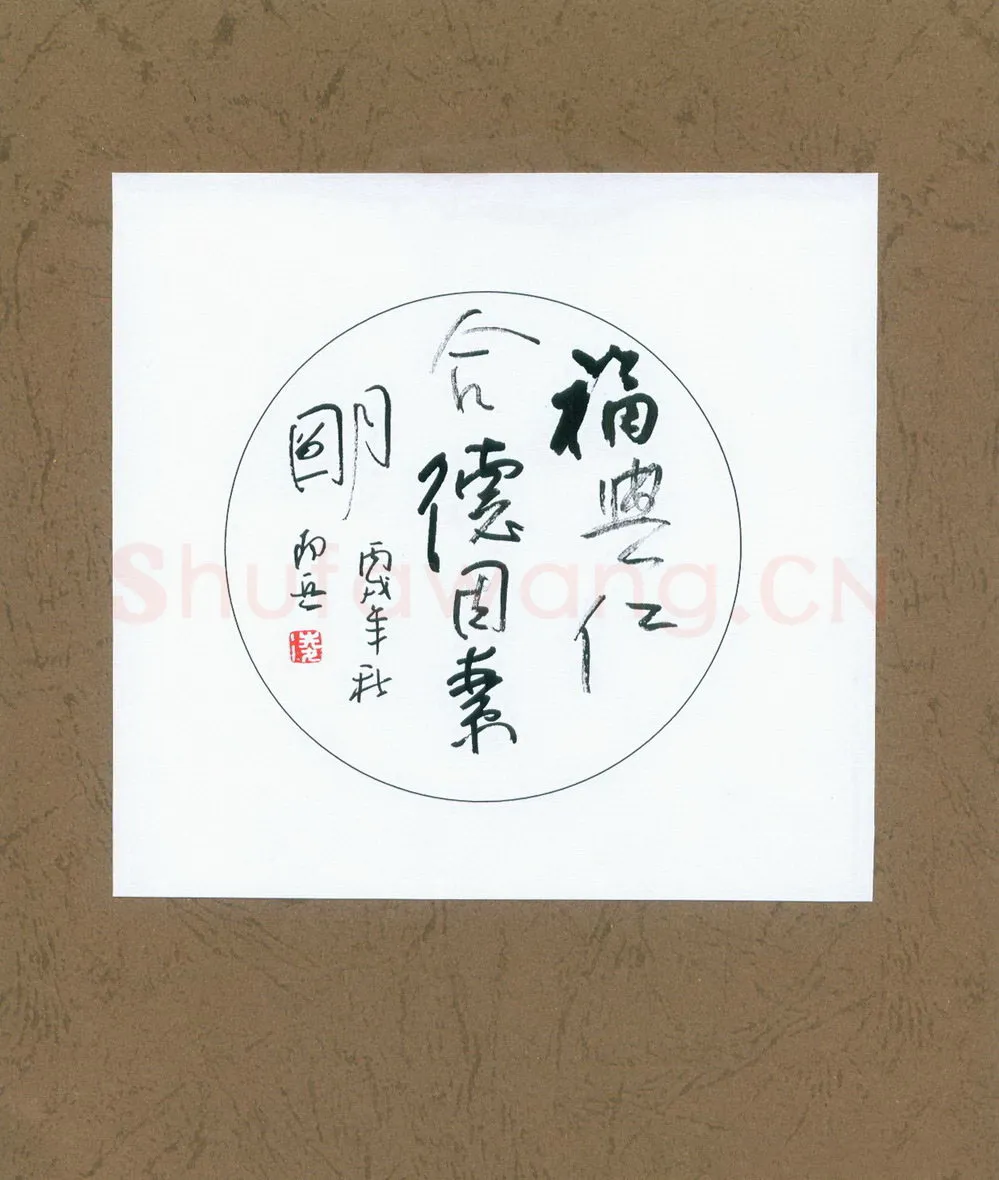 福與仁
合德因
朙
丙戌年秋
Shufawang.CN